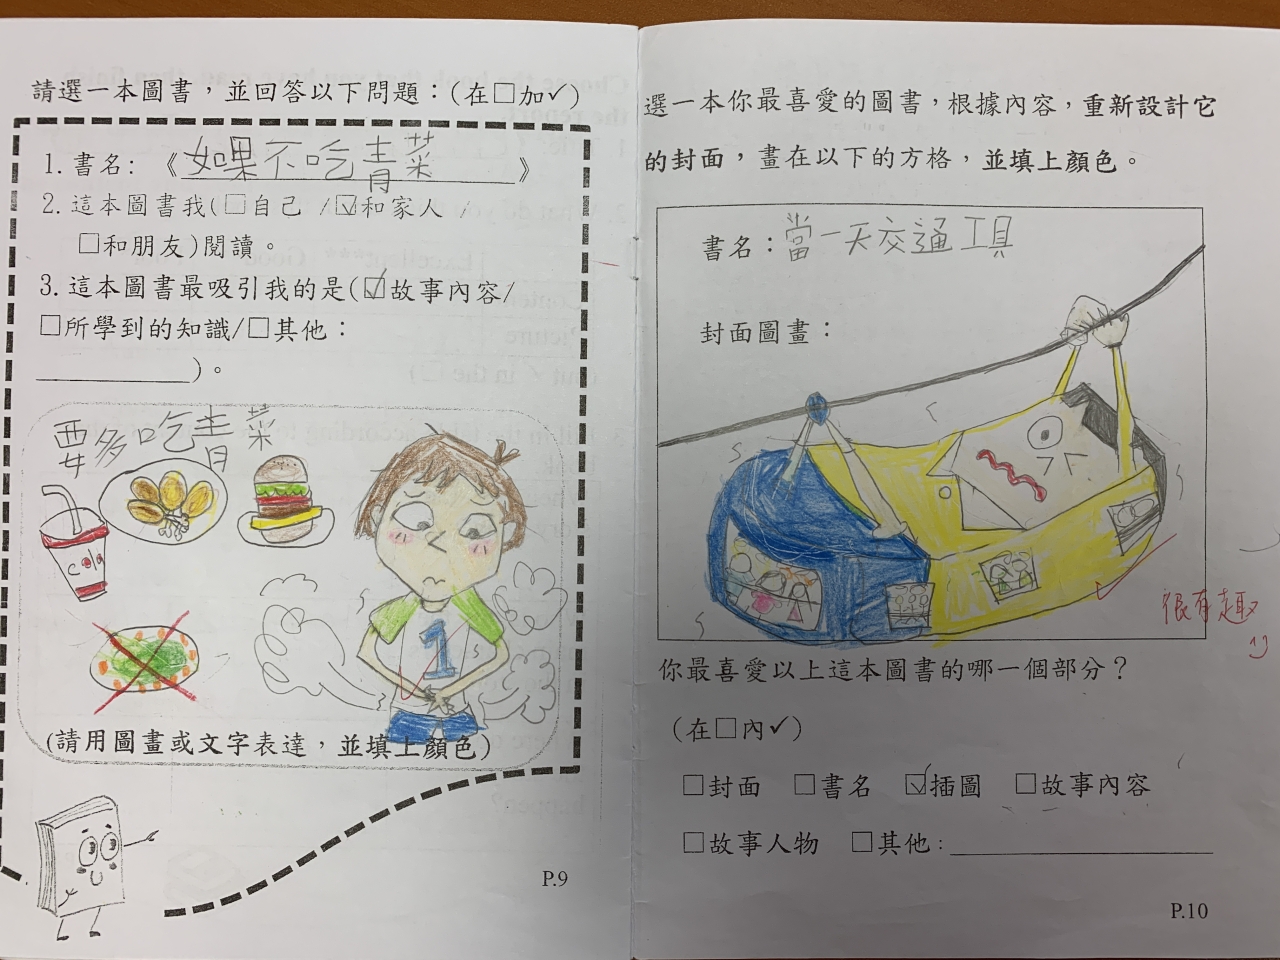 請選一本圖書，並回答以下問題：(在□加✓)
1. 書名: 《如果不吃青菜》
2. 這本圖書我(□自己 /☑和家人 /
□和朋友)閱讀。
3. 這本圖書最吸引我的是(☑故事內容/
□所學到的知識/□其他：
__________)。
要多吃青菜
cola
1
(請用圖畫或文字表達，並填上顏色)
P.9
選一本你最喜愛的圖書，根據內容，重新設計它
的封面，畫在以下的方格，並填上顏色。
書名：當一天交通工具
封面圖畫：
很有趣
你最喜愛以上這本圖書的哪一個部分？
(在□內✓)
□封面 □書名 ☑插圖 □故事內容
□故事人物 □其他：__________
P.10